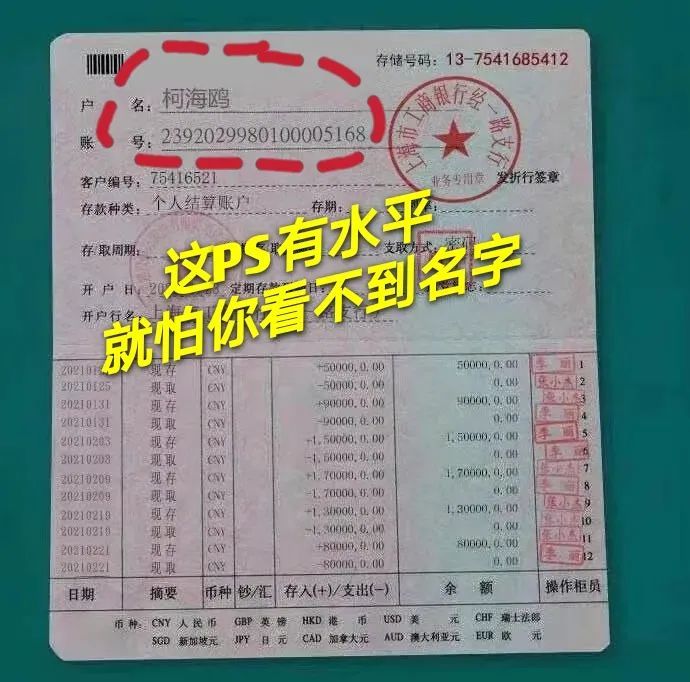 存储号码: 13-7541685412
户 名: 柯海鸥
账 号: 2392029980100005168
上海市工商银行经一路支行
业务专用章
客户编号: 75416521 发折行签章
存款种类: 个人结算账户 存期:
存/取周期: 支取方式: 密码
这PS有水平
就怕你看不到名字
开 户 日: 定期存款
开户行名: 上海
现存 CNY +50000,0.00 50000,0.00 李丽 1
20210125 现取 CNY -50000,0.00 0.00 张小杰 2
20210131 现存 CNY +90000,0.00 90000,0.00 张小杰 3
20210131 现取 CNY -90000,0.00 0.00 李丽 4
20210203 现存 CNY +1,50000,0.00 1,50000,0.00 李丽 5
20210203 现取 CNY 0.00 李丽 6
20210209 现存 CNY +1,70000,0.00 1,70000,0.00 张小杰 7
20210209 现取 CNY -1,70000,0.00 0.00 李丽 8
20210219 现存 CNY +1,30000,0.00 1,30000,0.00 张小杰 9
20210219 现取 CNY -1,30000,0.00 0.00 张小杰 10
20210221 现存 CNY +80000,0.00 80000,0.00 张小杰 11
20210221 现取 CNY -80000,0.00 0.00 李丽 12
日期 摘要 币种 钞/汇 存入(+)/支出(-) 余 额 操作柜员
币 种: CNY 人 民 币 GBP 英 镑 HKD 港 币 USD 美 元 CHF 瑞士法郎
SGD 新加坡元 JPY 日 元 CAD 加拿大元 AUD 澳大利亚元 EUR 欧 元